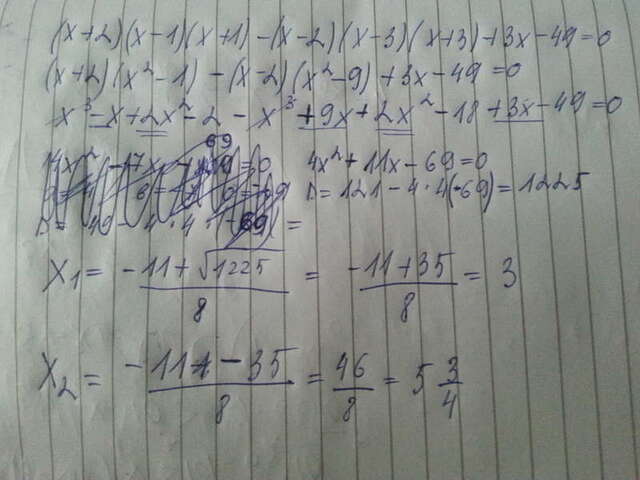 (x+2)(x-1)(x+1)-(x-2)(x-3)(x+3)+3x-49=0
(x+2)(x²-1)-(x-2)(x²-9)+3x-49=0
x³-x+2x²-2-x³+9x+2x²-18+3x-49=0
4x²+11x-69=0
D=121-4·4(-69)=1225
x₁= (-11+√1225)/8 = (-11+35)/8 = 3
x₂= (-11-35)/8 = 46/8 = 5 3/4